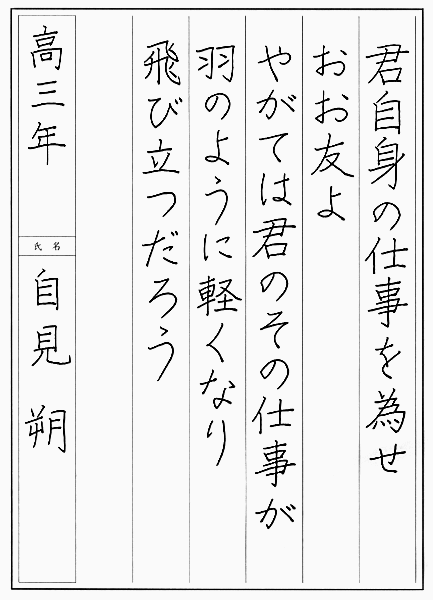 君自身の仕事を為せ
おお友よ
やがては君のその仕事が
羽のように軽くなり
飛び立つだろう
高三年
氏名
自見 朔